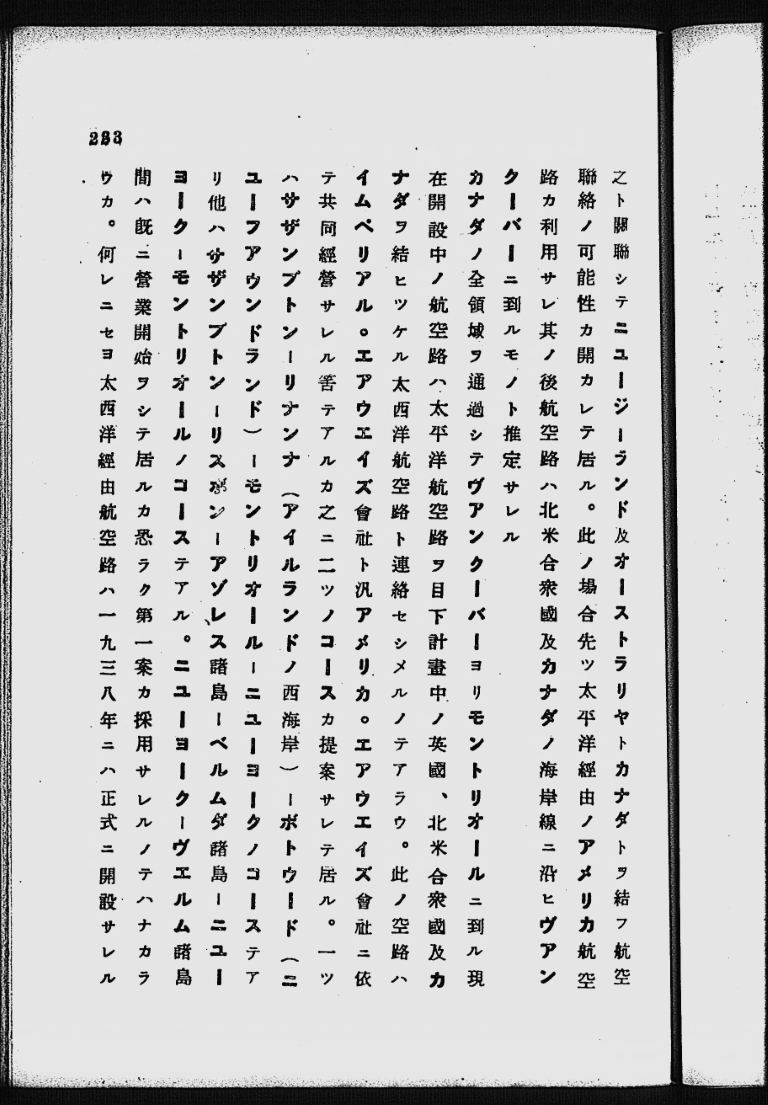 之ト關聯シテニユージーランド及オーストラリヤトカナダトヲ結フ航空
聯絡ノ可能性カ開カレテ居ル。此ノ場合先ツ太平洋經由ノアメリカ航空
路カ利用サレ其ノ後航空路ハ北米合衆國及カナダノ海岸線ニ沿ヒヴアン
クーバーニ到ルモノト推定サレル
カナダノ全領域ヲ通過シテヴアンクーバーヨリモントリオールニ到ル現
在開設中ノ航空路ハ太平洋航空路ヲ目下計畫中ノ英國、北米合衆國及カ
ナダヲ結ヒツケル太西洋航空路ト連絡セシメルノテアラウ。此ノ空路ハ
イムペリアル。エアウエイズ會社ト汎アメリカ。エアウエイズ會社ニ依
テ共同經營サレル筈テアルカ之ニ二ツノコースカ提案サレテ居ル。一ツ
ハサザンプトンーリナンナ（アイルランドノ西海岸）ーボトウード（ニ
ユーフアウンドランド）ーモントリオールーニユーヨークノコーステア
リ他ハサザンプトンーリスボンーアゾレス諸島ーベルムダ諸島ーニユー
ヨークーモントリオールノコーステアル。ニユーヨークーヴエルム諸島
間ハ既ニ營業開始ヲシテ居ルカ恐ラク第一案カ採用サレルノテハナカラ
ウカ。何レニセヨ太西洋經由航空路ハ一九三八年ニハ正式ニ開設サレル
223